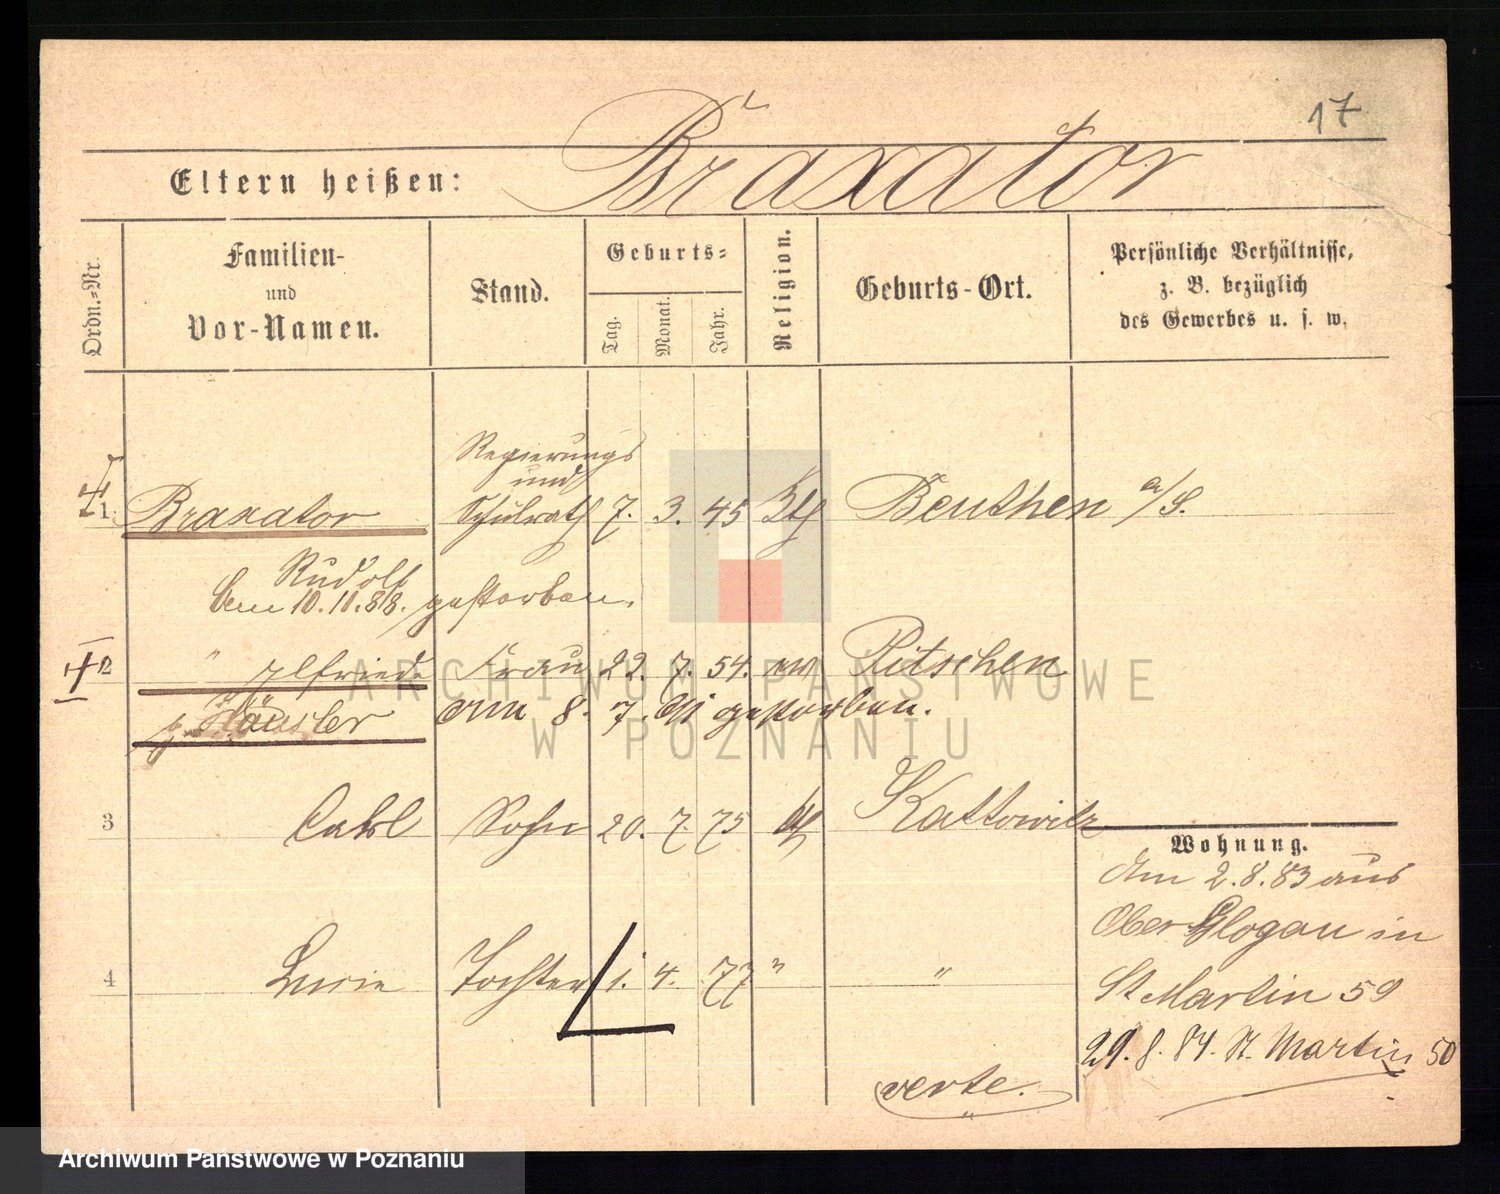 17
Eltern heißen: Braxator
Ordn.=Nr.
Familien-
und
Vor-Namen.
Stand.
Geburts=
Tag.
Monat.
Jahr.
Religion.
Geburts-Ort.
Persönliche Verhältnisse,
z. B. bezüglich
des Gewerbes u. s. w.
Regierungs
und
1. Braxator Schulrath 7. 3. 45 Kth Beuthen a/S.
Rudolf
Am 10.11.88. gestorben.
2 " Elfriede Frau 22. 7. 54. ev Pitschen
g. Häusler Am 8. 7. gestorben.
3 Carl Sohn 20. 7. 75 kth Kattowitz
Wohnung.
Am 2.8.83 aus
Ober Glogau in
4 Lucie Tochter 1. 4. 77 " "
St Martin 59
29. 8. 84. St. Martin 50
verte.
ARCHIWUM PAŃSTWOWE
W POZNANIU
Archiwum Państwowe w Poznaniu